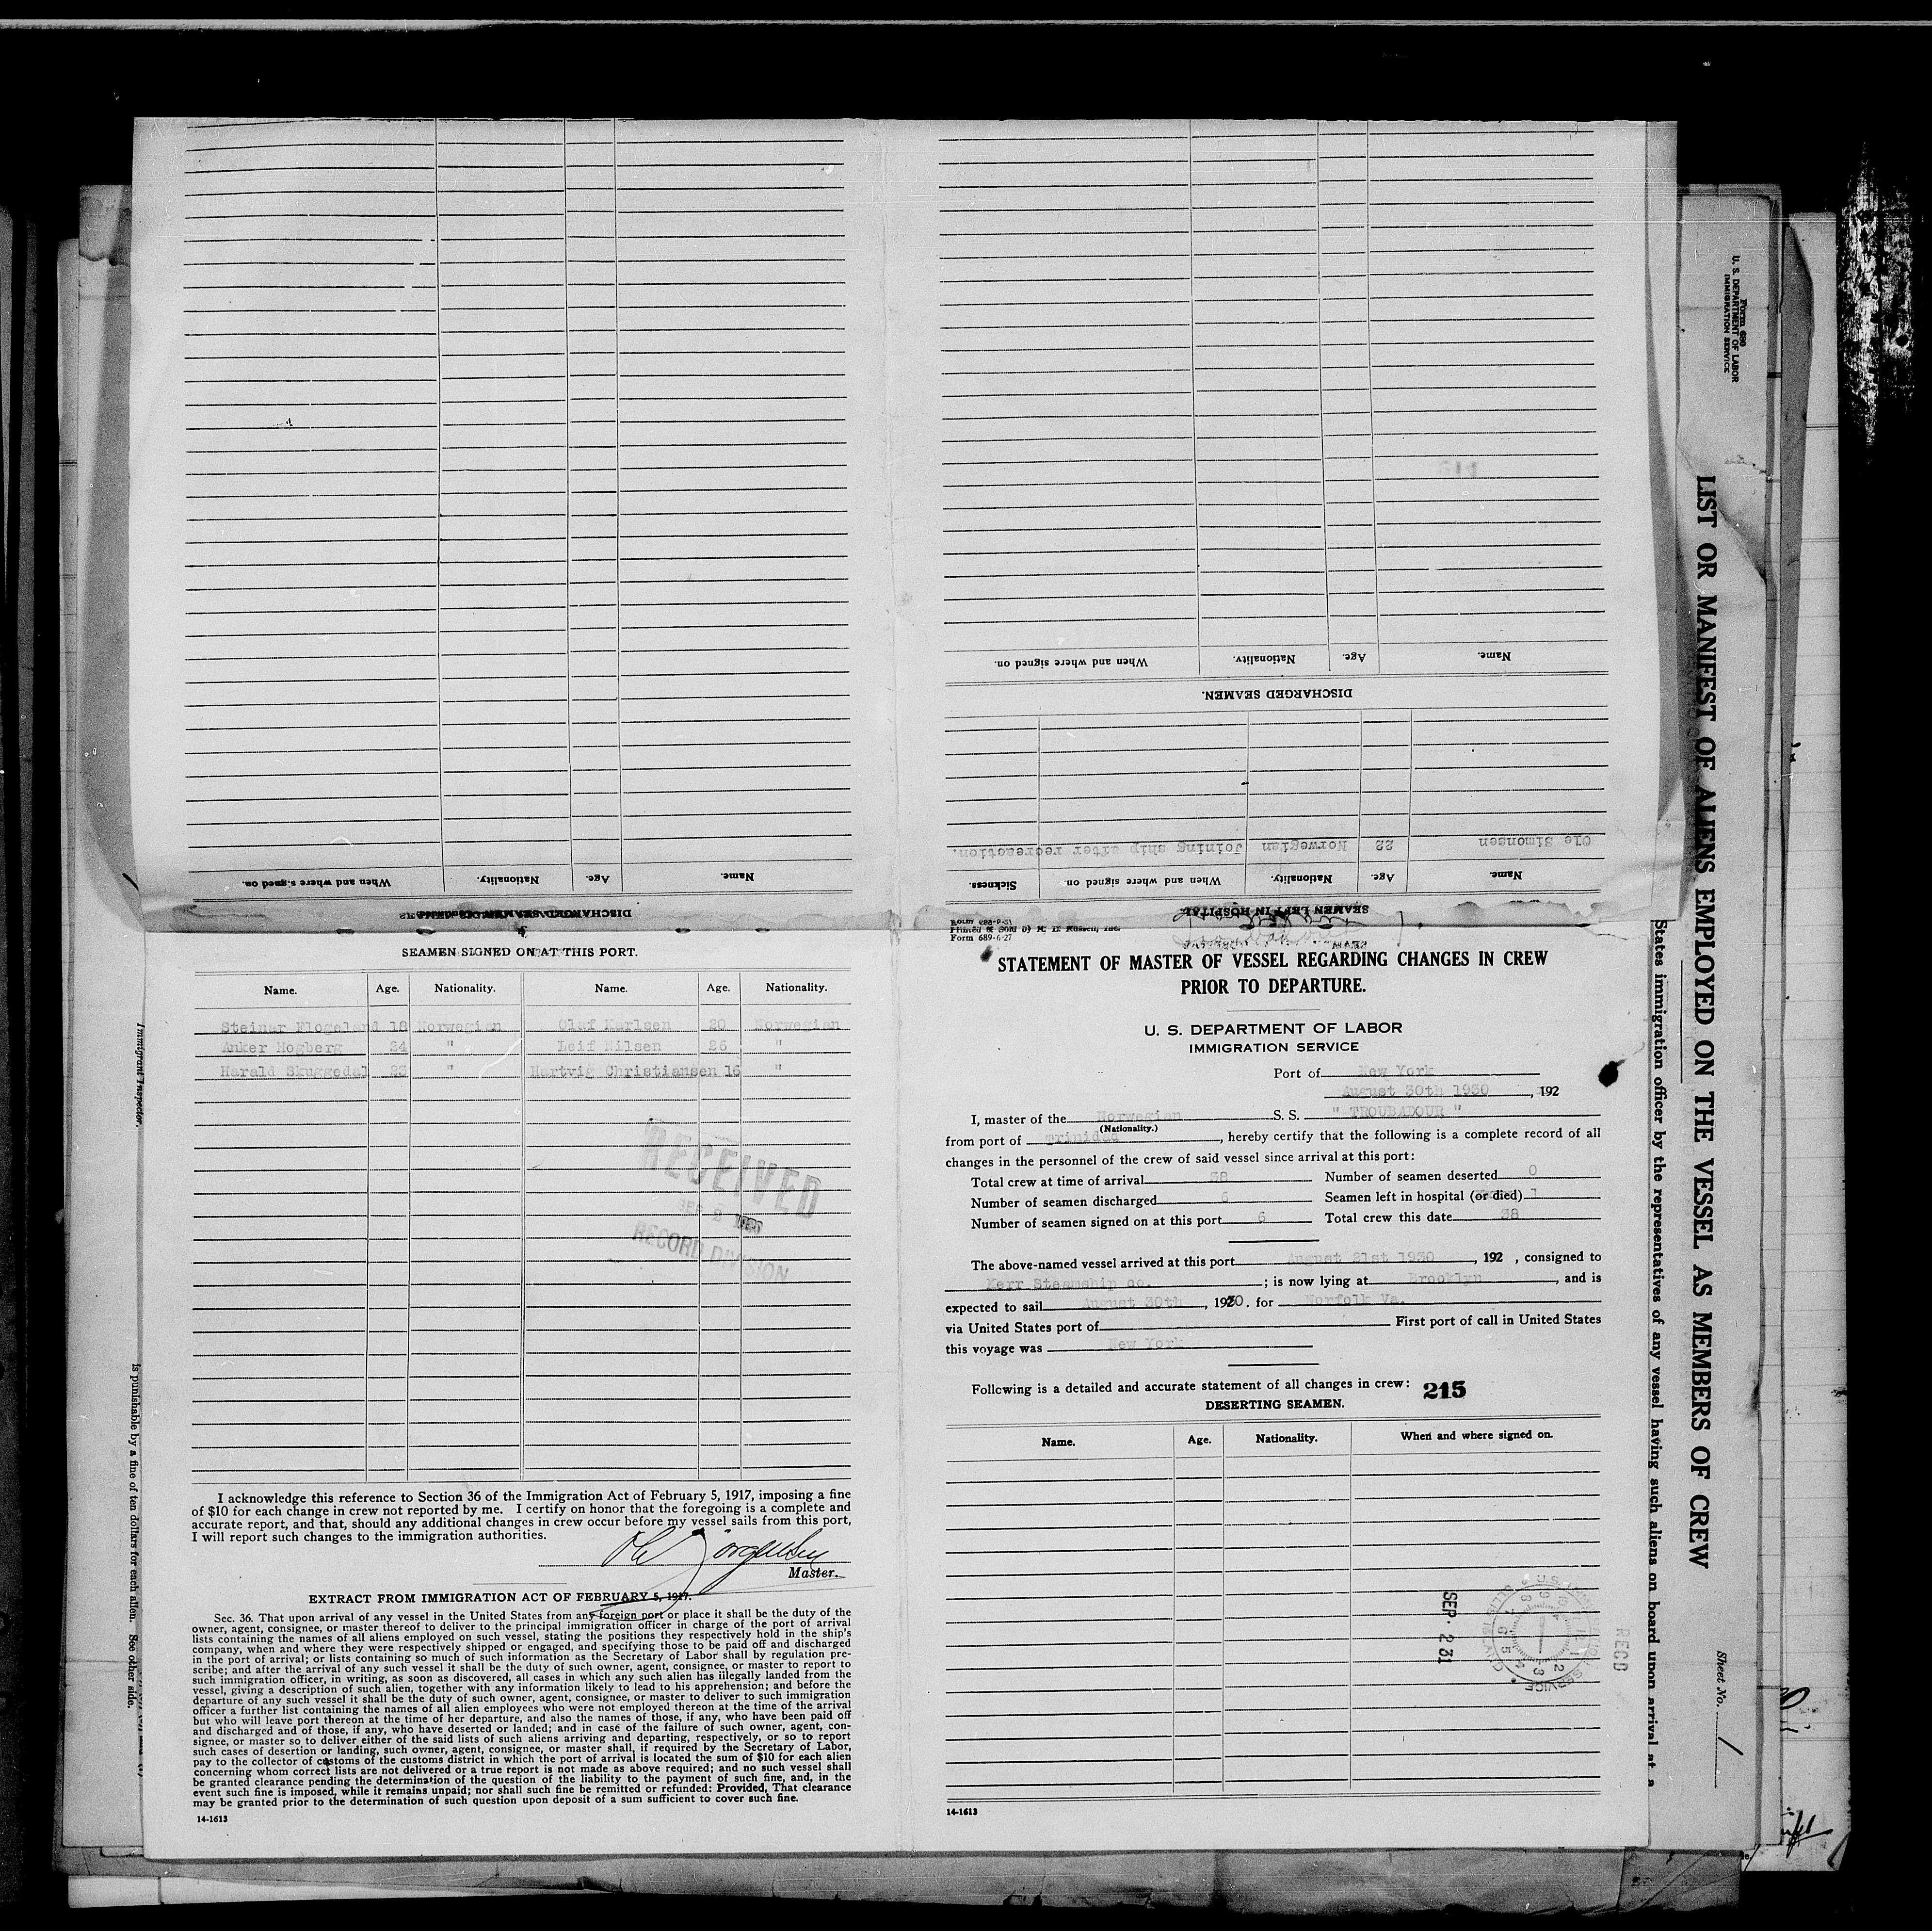 Form 680
U. S. DEPARTMENT OF LABOR
IMMIGRATION SERVICE
LIST OR MANIFEST OF ALIENS EMPLOYED ON THE VESSEL AS MEMBERS OF CREW
Sheet No. 1
States immigration officer by the representatives of any vessel having such aliens on board upon arrival at a
Immigrant Inspector.
is punishable by a fine of ten dollars for each alien. See other side.
DISCHARGED SEAMEN.
Name. Age. Nationality. When and where signed on.
SEAMEN LEFT IN HOSPITAL.
Name. Age. Nationality. When and where signed on Sickness.
Ole Simonsen 22 Norwegian Joining ship after recreaction.
DISCHARGED SEAMEN
Name. Age. Nationality. When and where signed on.
SEAMEN SIGNED ON AT THIS PORT.
Name. Age. Nationality. Name. Age. Nationality.
Steinar Flogeland 18 Norwegian Oluf Karlsen 20 Norwegian
Anker Hogberg 24 " Leif Nilsen 26 "
Harald Skuggedal 23 " Hartvig Christiansen 16 "
RECEIVED
SEP 2 1930
RECORD DIVISION
I acknowledge this reference to Section 36 of the Immigration Act of February 5, 1917, imposing a fine
of $10 for each change in crew not reported by me. I certify on honor that the foregoing is a complete and
accurate report, and that, should any additional changes in crew occur before my vessel sails from this port,
I will report such changes to the immigration authorities.
Jörgensen
Master.
EXTRACT FROM IMMIGRATION ACT OF FEBRUARY 5, 1917.
Sec. 36. That upon arrival of any vessel in the United States from any foreign port or place it shall be the duty of the
owner, agent, consignee, or master thereof to deliver to the principal immigration officer in charge of the port of arrival
lists containing the names of all aliens employed on such vessel, stating the positions they respectively hold in the ship's
company, when and where they were respectively shipped or engaged, and specifying those to be paid off and discharged
in the port of arrival; or lists containing so much of such information as the Secretary of Labor shall by regulation pre-
scribe; and after the arrival of any such vessel it shall be the duty of such owner, agent, consignee, or master to report to
such immigration officer, in writing, as soon as discovered, all cases in which any such alien has illegally landed from the
vessel, giving a description of such alien, together with any information likely to lead to his apprehension; and before the
departure of any such vessel it shall be the duty of such owner, agent, consignee, or master to deliver to such immigration
officer a further list containing the names of all alien employees who were not employed thereon at the time of the arrival
but who will leave port thereon at the time of her departure, and also the names of those, if any, who have been paid off
and discharged and of those, if any, who have deserted or landed; and in case of the failure of such owner, agent, con-
signee, or master so to deliver either of the said lists of such aliens arriving and departing, respectively, or so to report
such cases of desertion or landing, such owner, agent, consignee, or master shall, if required by the Secretary of Labor,
pay to the collector of customs of the customs district in which the port of arrival is located the sum of $10 for each alien
concerning whom correct lists are not delivered or a true report is not made as above required; and no such vessel shall
be granted clearance pending the determination of the question of the liability to the payment of such fine, and, in the
event such fine is imposed, while it remains unpaid; nor shall such fine be remitted or refunded: Provided, That clearance
may be granted prior to the determination of such question upon deposit of a sum sufficient to cover such fine.
14-1613
Form 689-6-27
STATEMENT OF MASTER OF VESSEL REGARDING CHANGES IN CREW
PRIOR TO DEPARTURE.
U. S. DEPARTMENT OF LABOR
IMMIGRATION SERVICE
Port of New York
August 30th 1930, 192
I, master of the Norwegian S. S. " TROUBADOUR "
(Nationality.)
from port of Trinidad, hereby certify that the following is a complete record of all
changes in the personnel of the crew of said vessel since arrival at this port:
Total crew at time of arrival 38 Number of seamen deserted 0
Number of seamen discharged 6 Seamen left in hospital (or died) 1
Number of seamen signed on at this port 6 Total crew this date 38
The above-named vessel arrived at this port August 21st 1930, 192 , consigned to
Kerr Steamship co. ; is now lying at Brooklyn, and is
expected to sail August 30th, 1930. for Norfolk Va.
via United States port of First port of call in United States
this voyage was New York
Following is a detailed and accurate statement of all changes in crew: 215
DESERTING SEAMEN.
Name. Age. Nationality. When and where signed on.
SEP. 2 31
RECD
14-1613